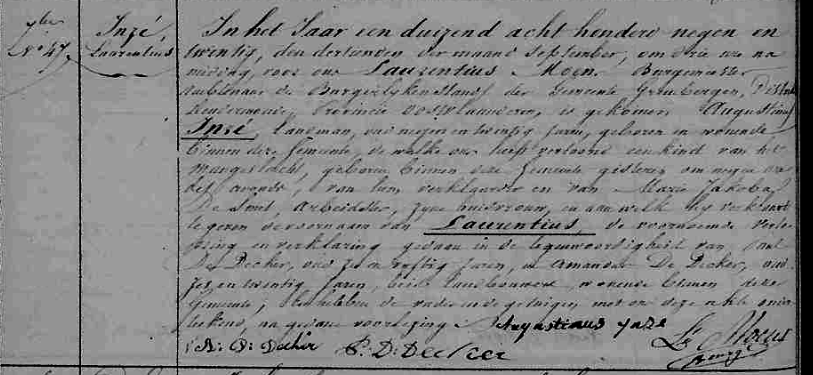 7ber
N° 47
Inzé,
Laurentius
In het Jaar een duizend acht honderd negen en
twintig, den dertienden der maand September, om drie ure na
middag, voor ons Laurentius Moens Burgemeester
Ambtenaar de Burgerlyken Stand der Gemeente Grembergen, District
Dendermonde, Provincie Oostvlaanderen, is gekomen Augustinus
Inzé, Landman, oud negen en twintig jaren, geboren en wonende
binnen deze Gemeente, de welke ons heeft vertoond een kind van het
Mangeslacht, geboren binnen deze Gemeente gisteren om negen ure
des avonds, van hem verklaarder en van Marie Jakoba
De Smet, Arbeidster, zyne huisvrouw, en aan welk hy verklaart
te geven de voornaam van Laurentius, de voorzeide vertoo-
ning en verklaring gedaan in de tegenwoordigheid van
De Decker, oud jaren, en Amandus De Decker, oud
zes en twintig jaren, beide Landbouwers wonende binnen deze
Gemeente, hebben de vader en de getuigen met ons deze akte onder-
teekend, na gedane voorlezing Augustinus ynze
A: D: Decker P. D: Decker L. Moens